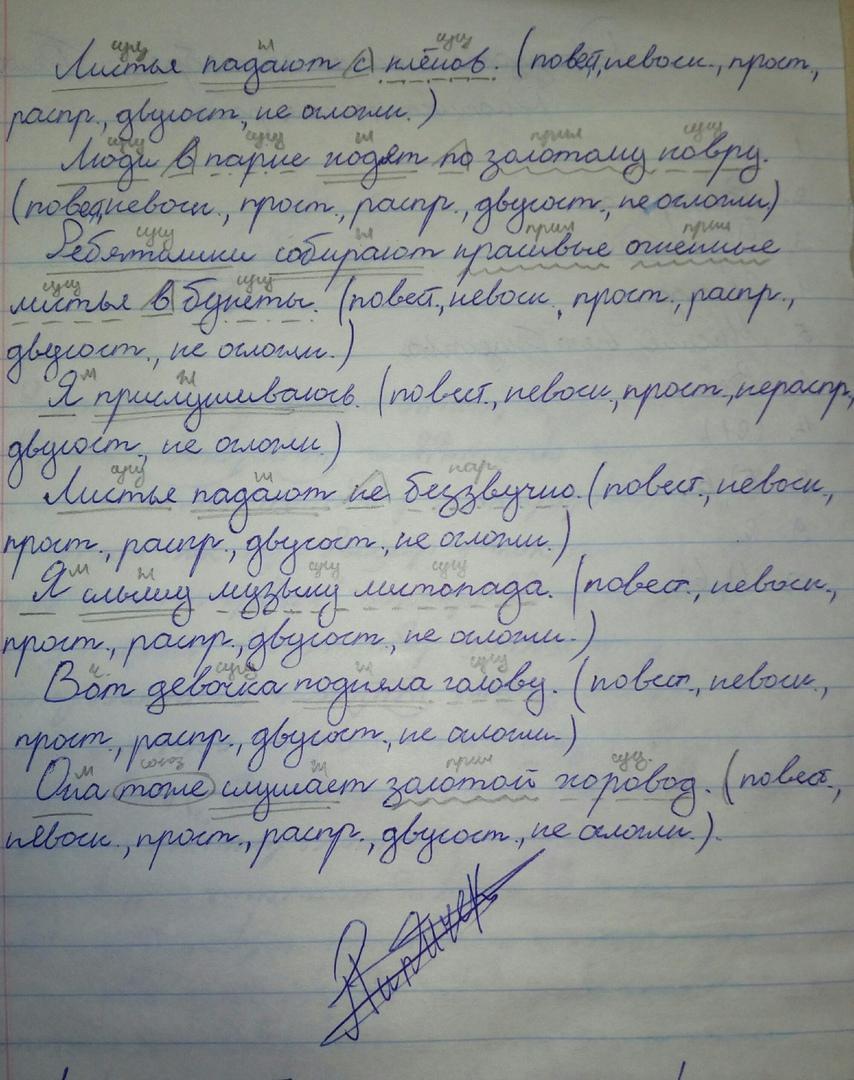 сущ гл сущ
Листья падают с клёнов. (повест, невоск., прост.,
распр., двусост., не осложн.)
сущ сущ гл прил сущ
Люди в парке ходят по золотому ковру.
(повест, невоск., прост., распр., двусост., не осложн)
сущ гл прил прил
Ребятишки собирают красивые огненные
сущ сущ
листья в букеты. (повест., невоск., прост., распр.,
двусост., не осложн.)
м гл
Я прислушиваюсь. (повест., невоск., прост., нераспр.,
двусост., не осложн.)
сущ гл нар.
Листья падают не беззвучно. (повест., невоск.,
прост., распр., двусост., не осложн.)
м гл сущ сущ
Я слышу музыку листопада. (повест., невоск.,
прост., распр., двусост., не осложн.)
ч. сущ гл сущ
Вот девочка подняла голову. (повест., невоск.,
прост., распр., двусост., не осложн.)
м союз гл прил сущ.
Она тоже слушает золотой хоровод. (повест.,
невоск., прост., распр., двусост., не осложн.).